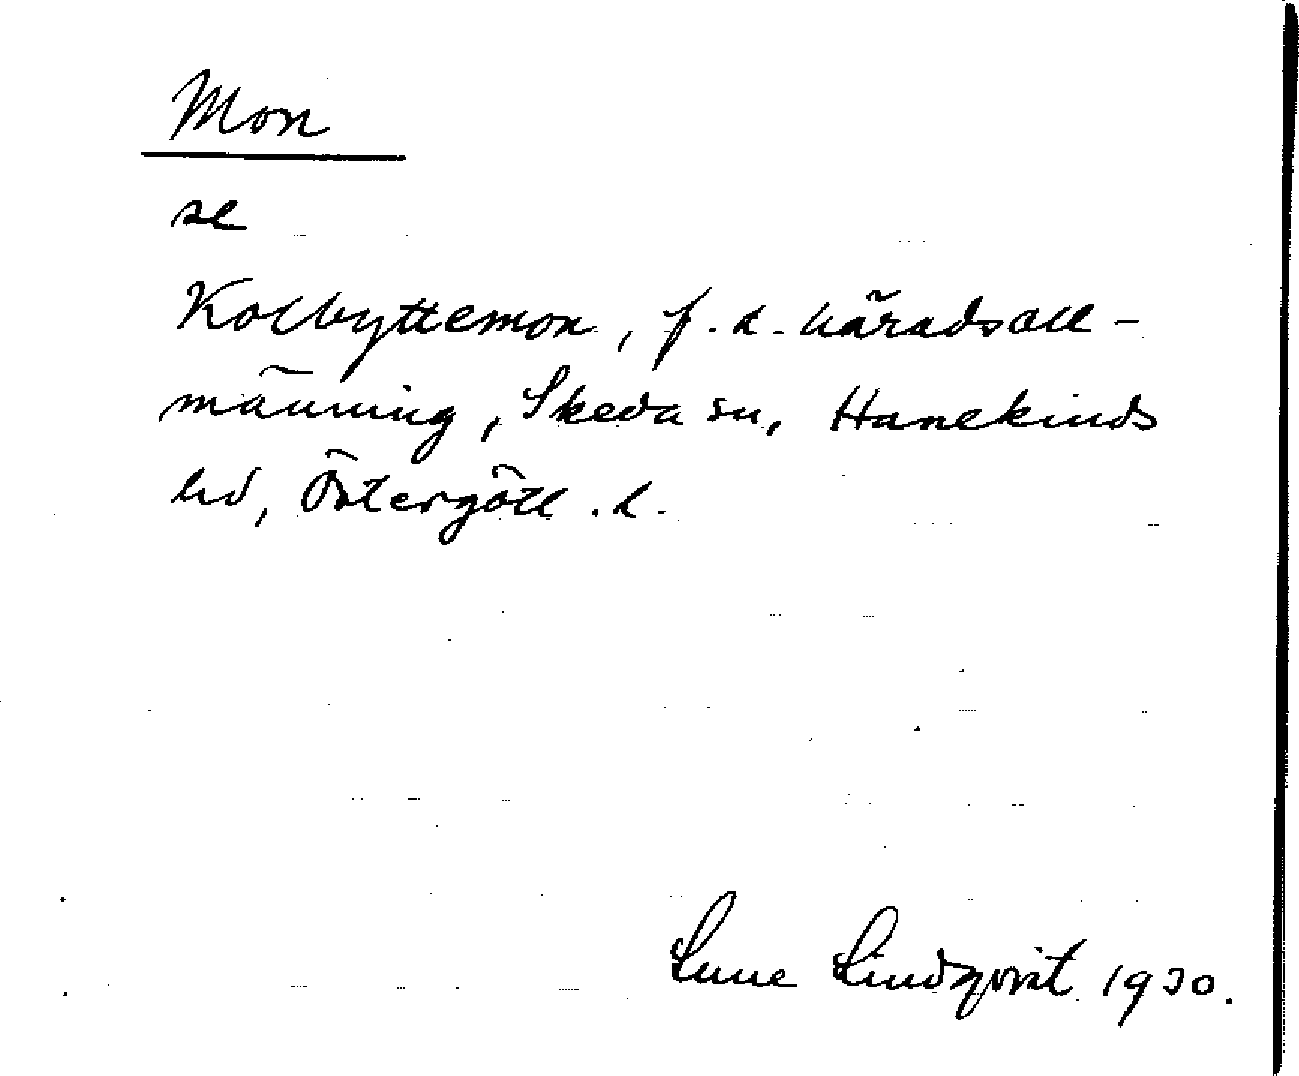 Mon
se
Kolbyttemon, f.d. häradsall-
männing, Skeda sn, Hanekinds
hd, Östergötl. l.
Sune Lindqvist 1930.